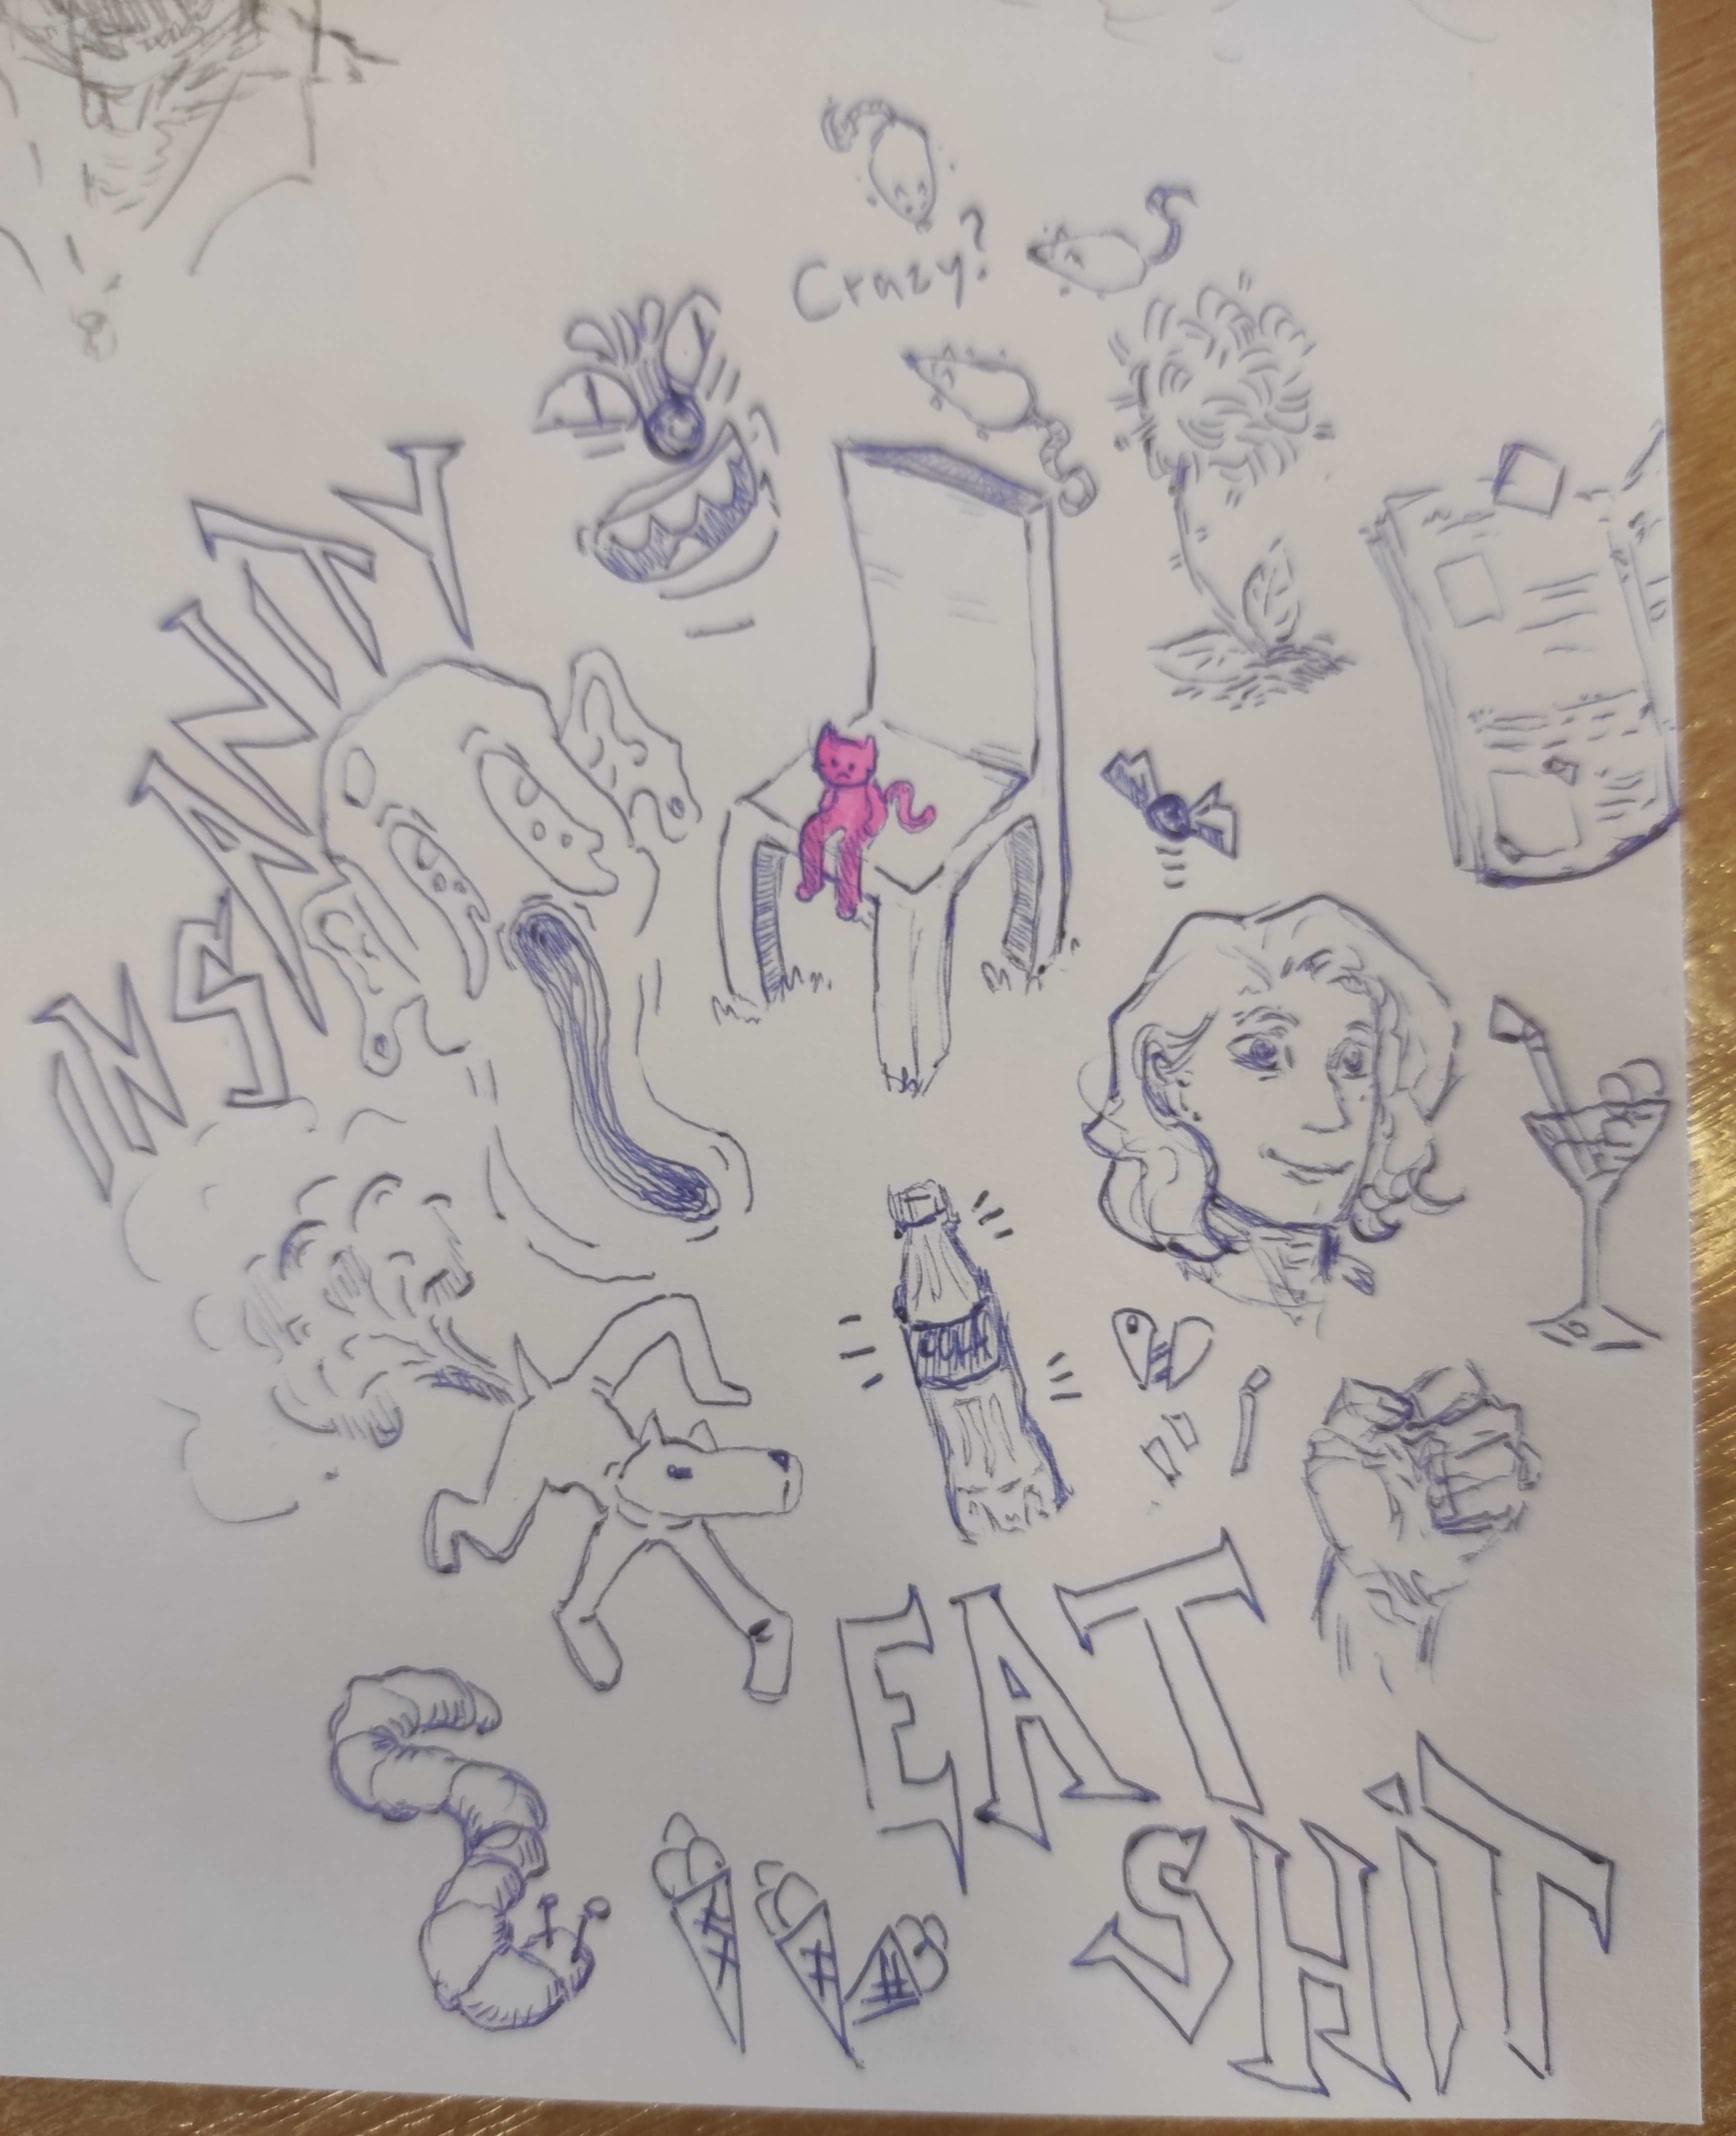 Crazy?
INSANITY
COLA
EAT
SHiT